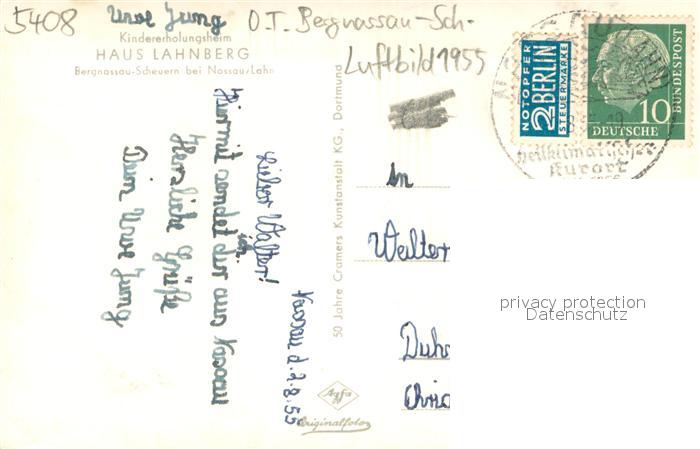 5408 Uwe Jung O.T. Bergnassau-Sch-
Luftbild 1955
Kindererholungsheim
HAUS LAHNBERG
Bergnassau-Scheuern bei Nassau/Lahn
NOTOPFER
2 BERLIN
STEUERMARKE
10
DEUTSCHE
BUNDESPOST
heilklimatischer
Kurort
50 Jahre Cramers Kunstanstalt KG., Dortmund
Nassau d. 7.8.55
Lieber Walter!
Hiermit sendet dir aus Nassau
ich
Herzliche Grüße
Dein Uwe Jung
An
Walter
Agfa
Originalfoto
privacy protection
Datenschutz